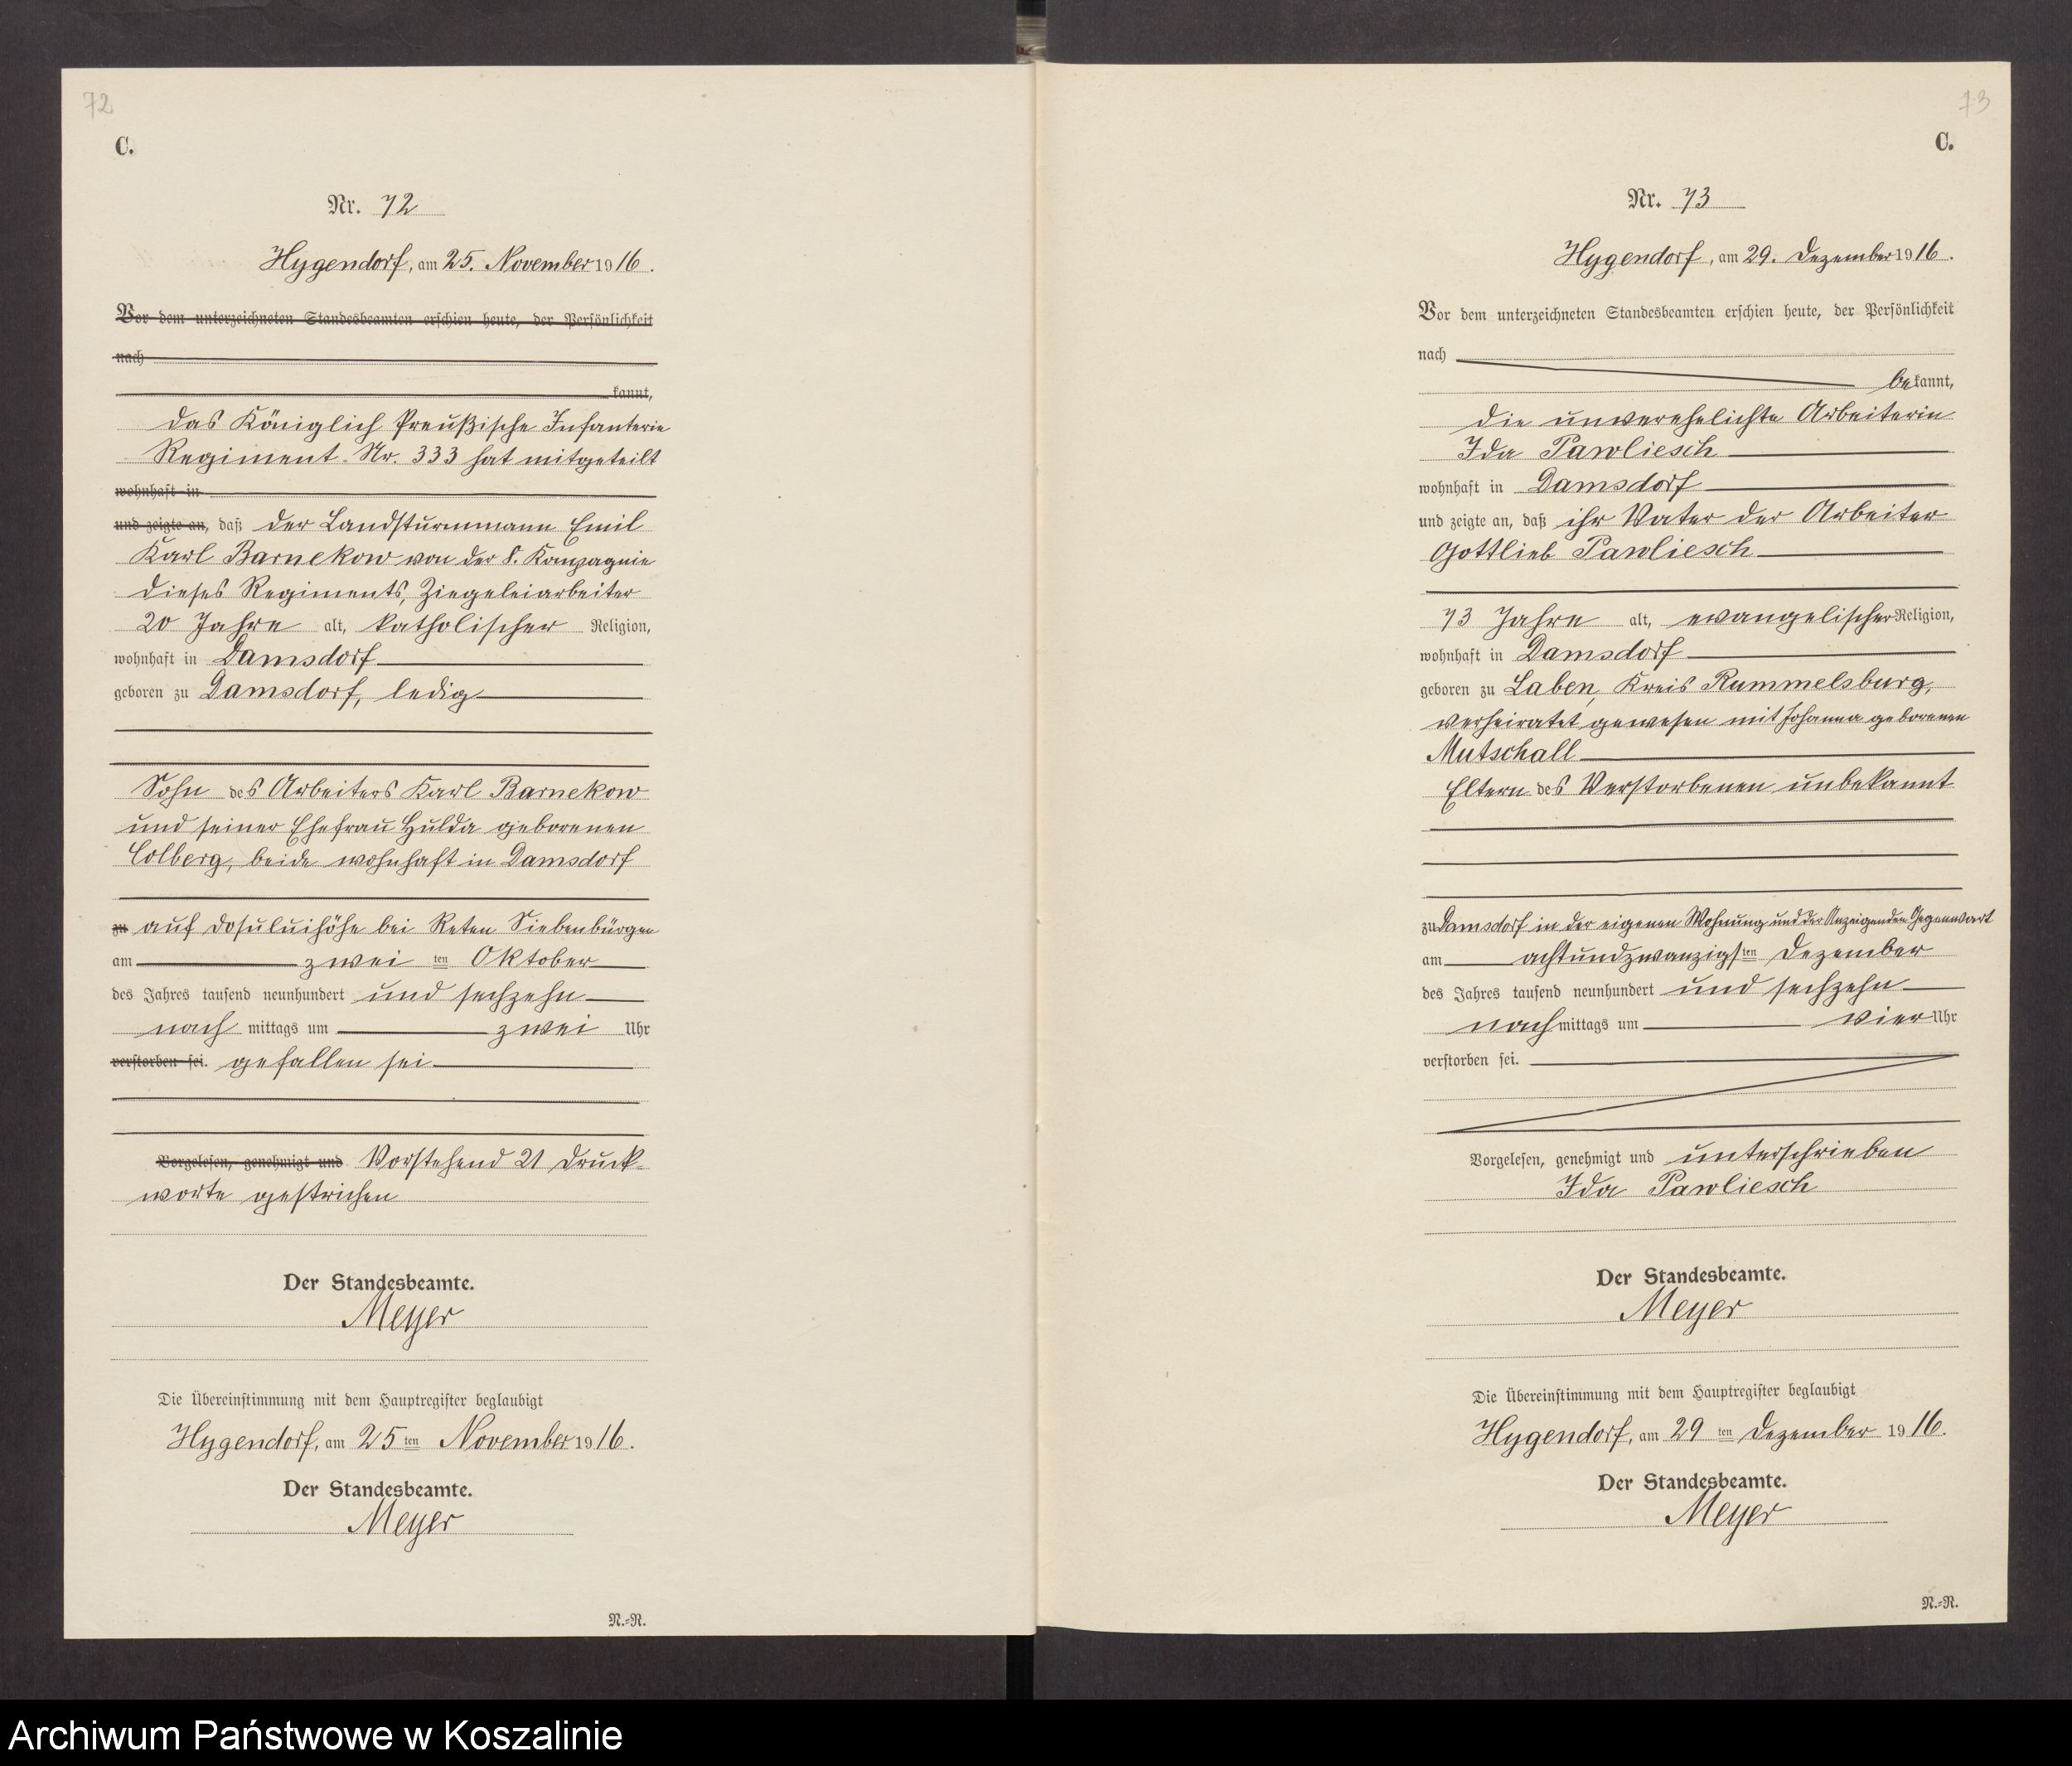 72
C.
Nr. 72
Hygendorf, am 25. November 1916.
Vor dem unterzeichneten Standesbeamten erschien heute, der Persönlichkeit
nach
kannt,
das Königlich Preußische Infanterie
Regiment Nr. 333 hat mitgeteilt
wohnhaft in
und zeigte an, daß der Landsturmmann Emil
Karl Barnekow von der 8. Kompagnie
dieses Regiments, Ziegeleiarbeiter
20 Jahre alt, katholischer Religion,
wohnhaft in Damsdorf
geboren zu Damsdorf, ledig
Sohn des Arbeiters Karl Barnekow
und seiner Ehefrau Hulda geborenen
Colberg, beide wohnhaft in Damsdorf
zu auf bei Reten Siebenbürgen
am zwei ten Oktober
des Jahres tausend neunhundert und sechzehn
nach mittags um zwei Uhr
verstorben sei. gefallen sei
Vorgelesen, genehmigt und Vorstehend 21 Druck-
worte gestrichen
Der Standesbeamte.
Meyer
Die Übereinstimmung mit dem Hauptregister beglaubigt
Hygendorf, am 25 ten November 1916.
Der Standesbeamte.
Meyer
N.-R.
73
C.
Nr. 73
Hygendorf, am 29. Dezember 1916.
Vor dem unterzeichneten Standesbeamten erschien heute, der Persönlichkeit
nach
bekannt,
die unverehelichte Arbeiterin
Ida Pawliesch
wohnhaft in Damsdorf
und zeigte an, daß ihr Vater der Arbeiter
Gottlieb Pawliesch
73 Jahre alt, evangelischer Religion,
wohnhaft in Damsdorf
geboren zu Laben, Kreis Rummelsburg,
verheiratet gewesen mit Johanna geborenen
Mutschall
Eltern des Verstorbenen unbekannt
zu Damsdorf in der eigenen Wohnung und der Anzeigenden Gegenwart
am achtundzwanzigsten Dezember
des Jahres tausend neunhundert und sechzehn
nach mittags um vier Uhr
verstorben sei.
Vorgelesen, genehmigt und unterschrieben
Ida Pawliesch
Der Standesbeamte.
Meyer
Die Übereinstimmung mit dem Hauptregister beglaubigt
Hygendorf, am 29 ten Dezember 1916.
Der Standesbeamte.
Meyer
N.-R.
Archiwum Państwowe w Koszalinie